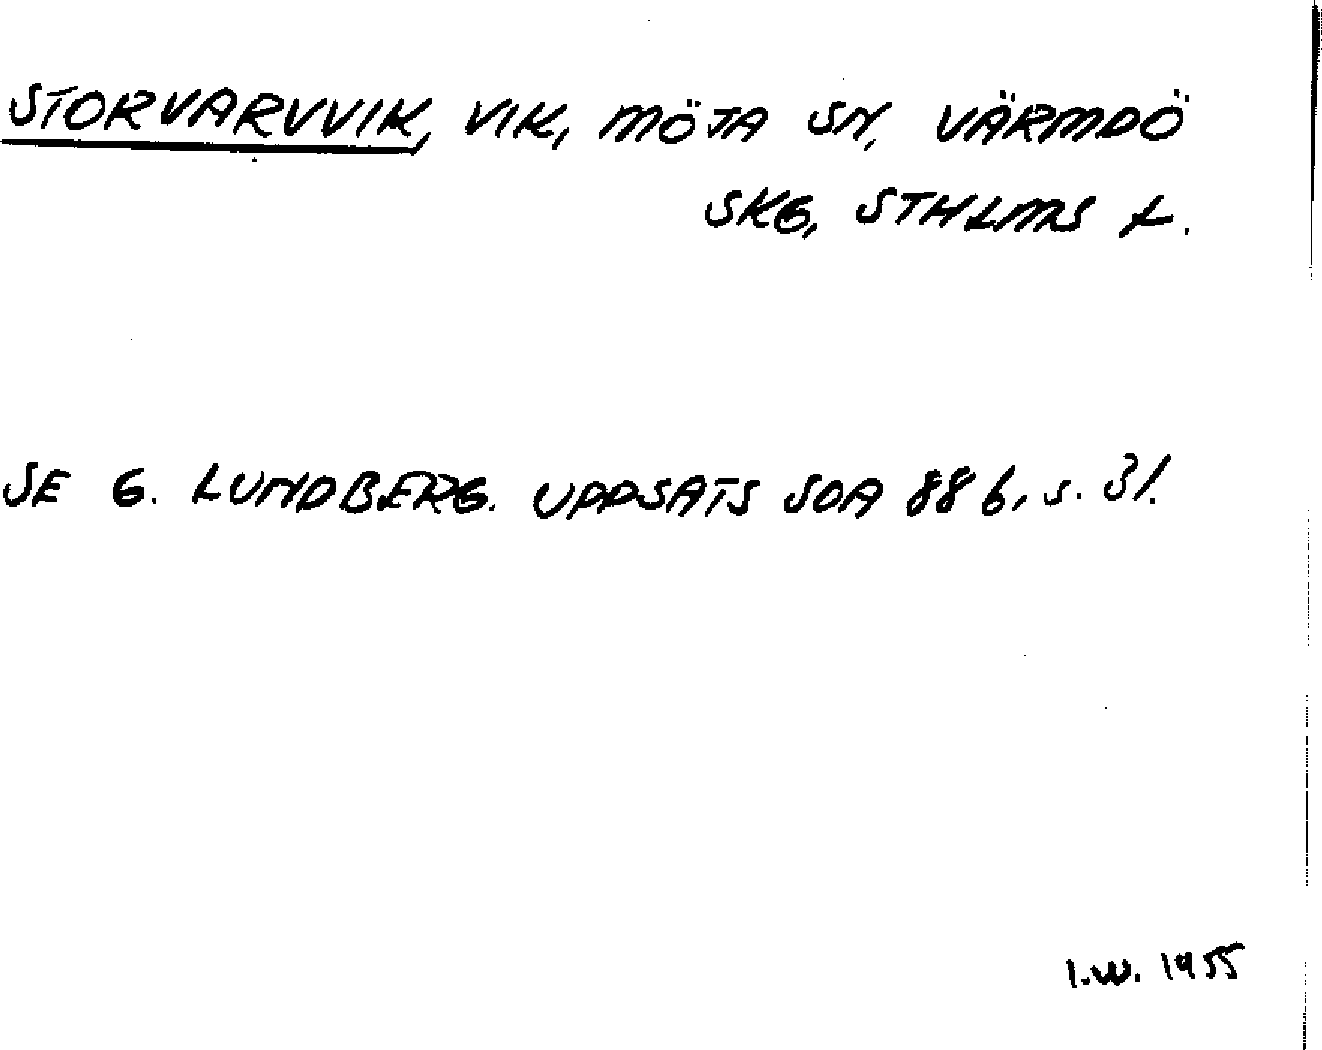 STORVARVVIK, VIK, MÖJA SN, VÄRMDÖ
SKG, STHLMS L.
SE G. LUNDBERG. UPPSATS SOA 88 6, s. 31.
I.W. 1955